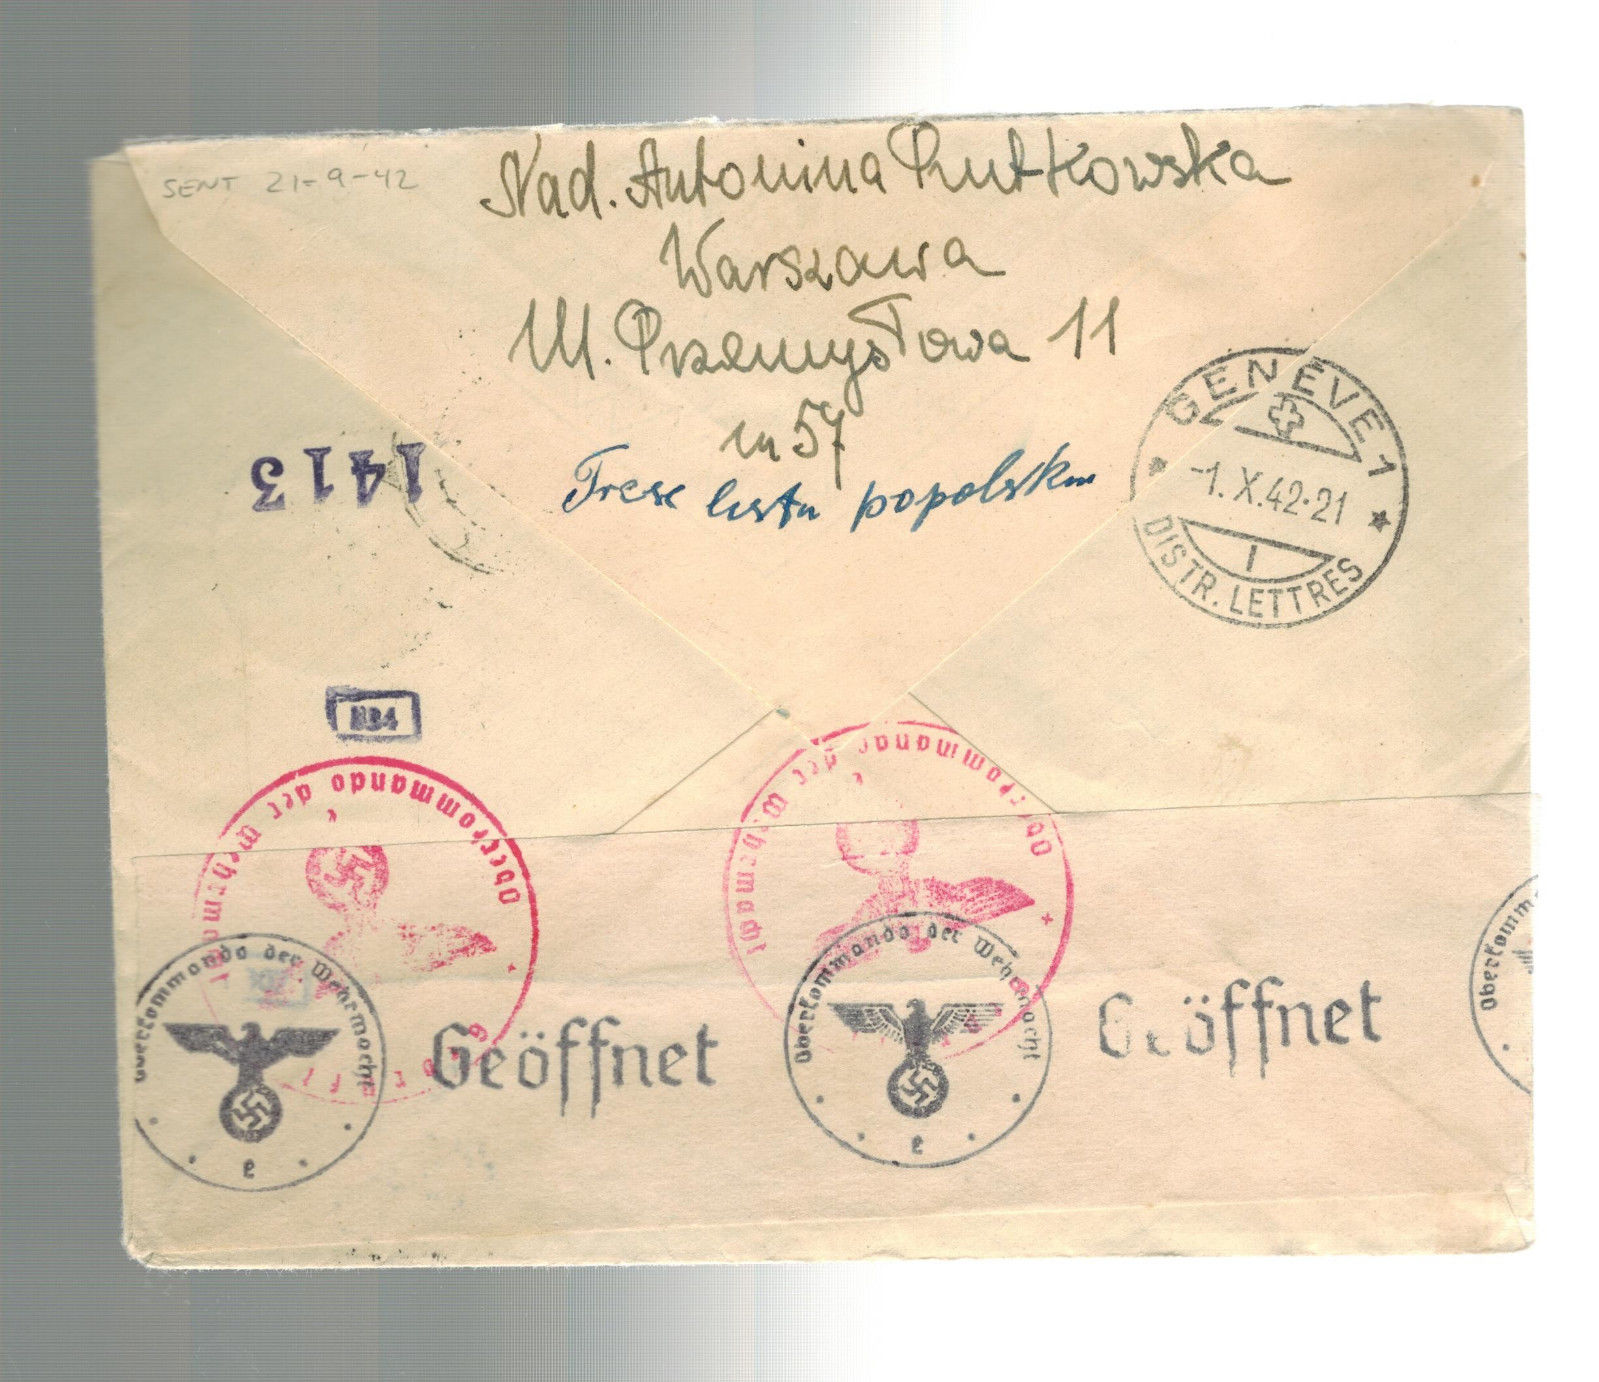 SENT 21-9-42
Nad. Antonina Rutkowska
Warszawa
Ul. Przemysłowa 11
m 57
Tresc listu popolsku
1413
GENÈVE 1
-1.X.42-21
I
DISTR. LETTRES
Oberkommando der Wehrmacht
Oberkommando der Wehrmacht
Oberkommando der Wehrmacht
e
Geöffnet
Oberkommando der Wehrmacht
e
Geöffnet
Oberkomm